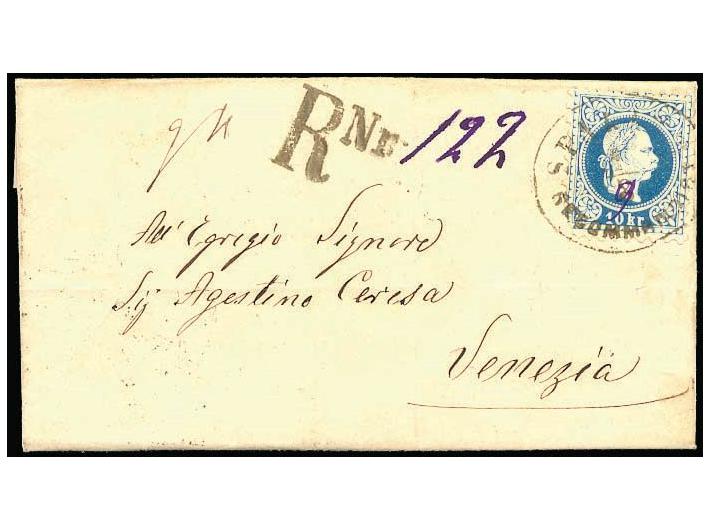 R NE 122
10 kr
RECOMMANDIRT
All' Egregio Signore
Sig Agostino Ceresa
Venezia